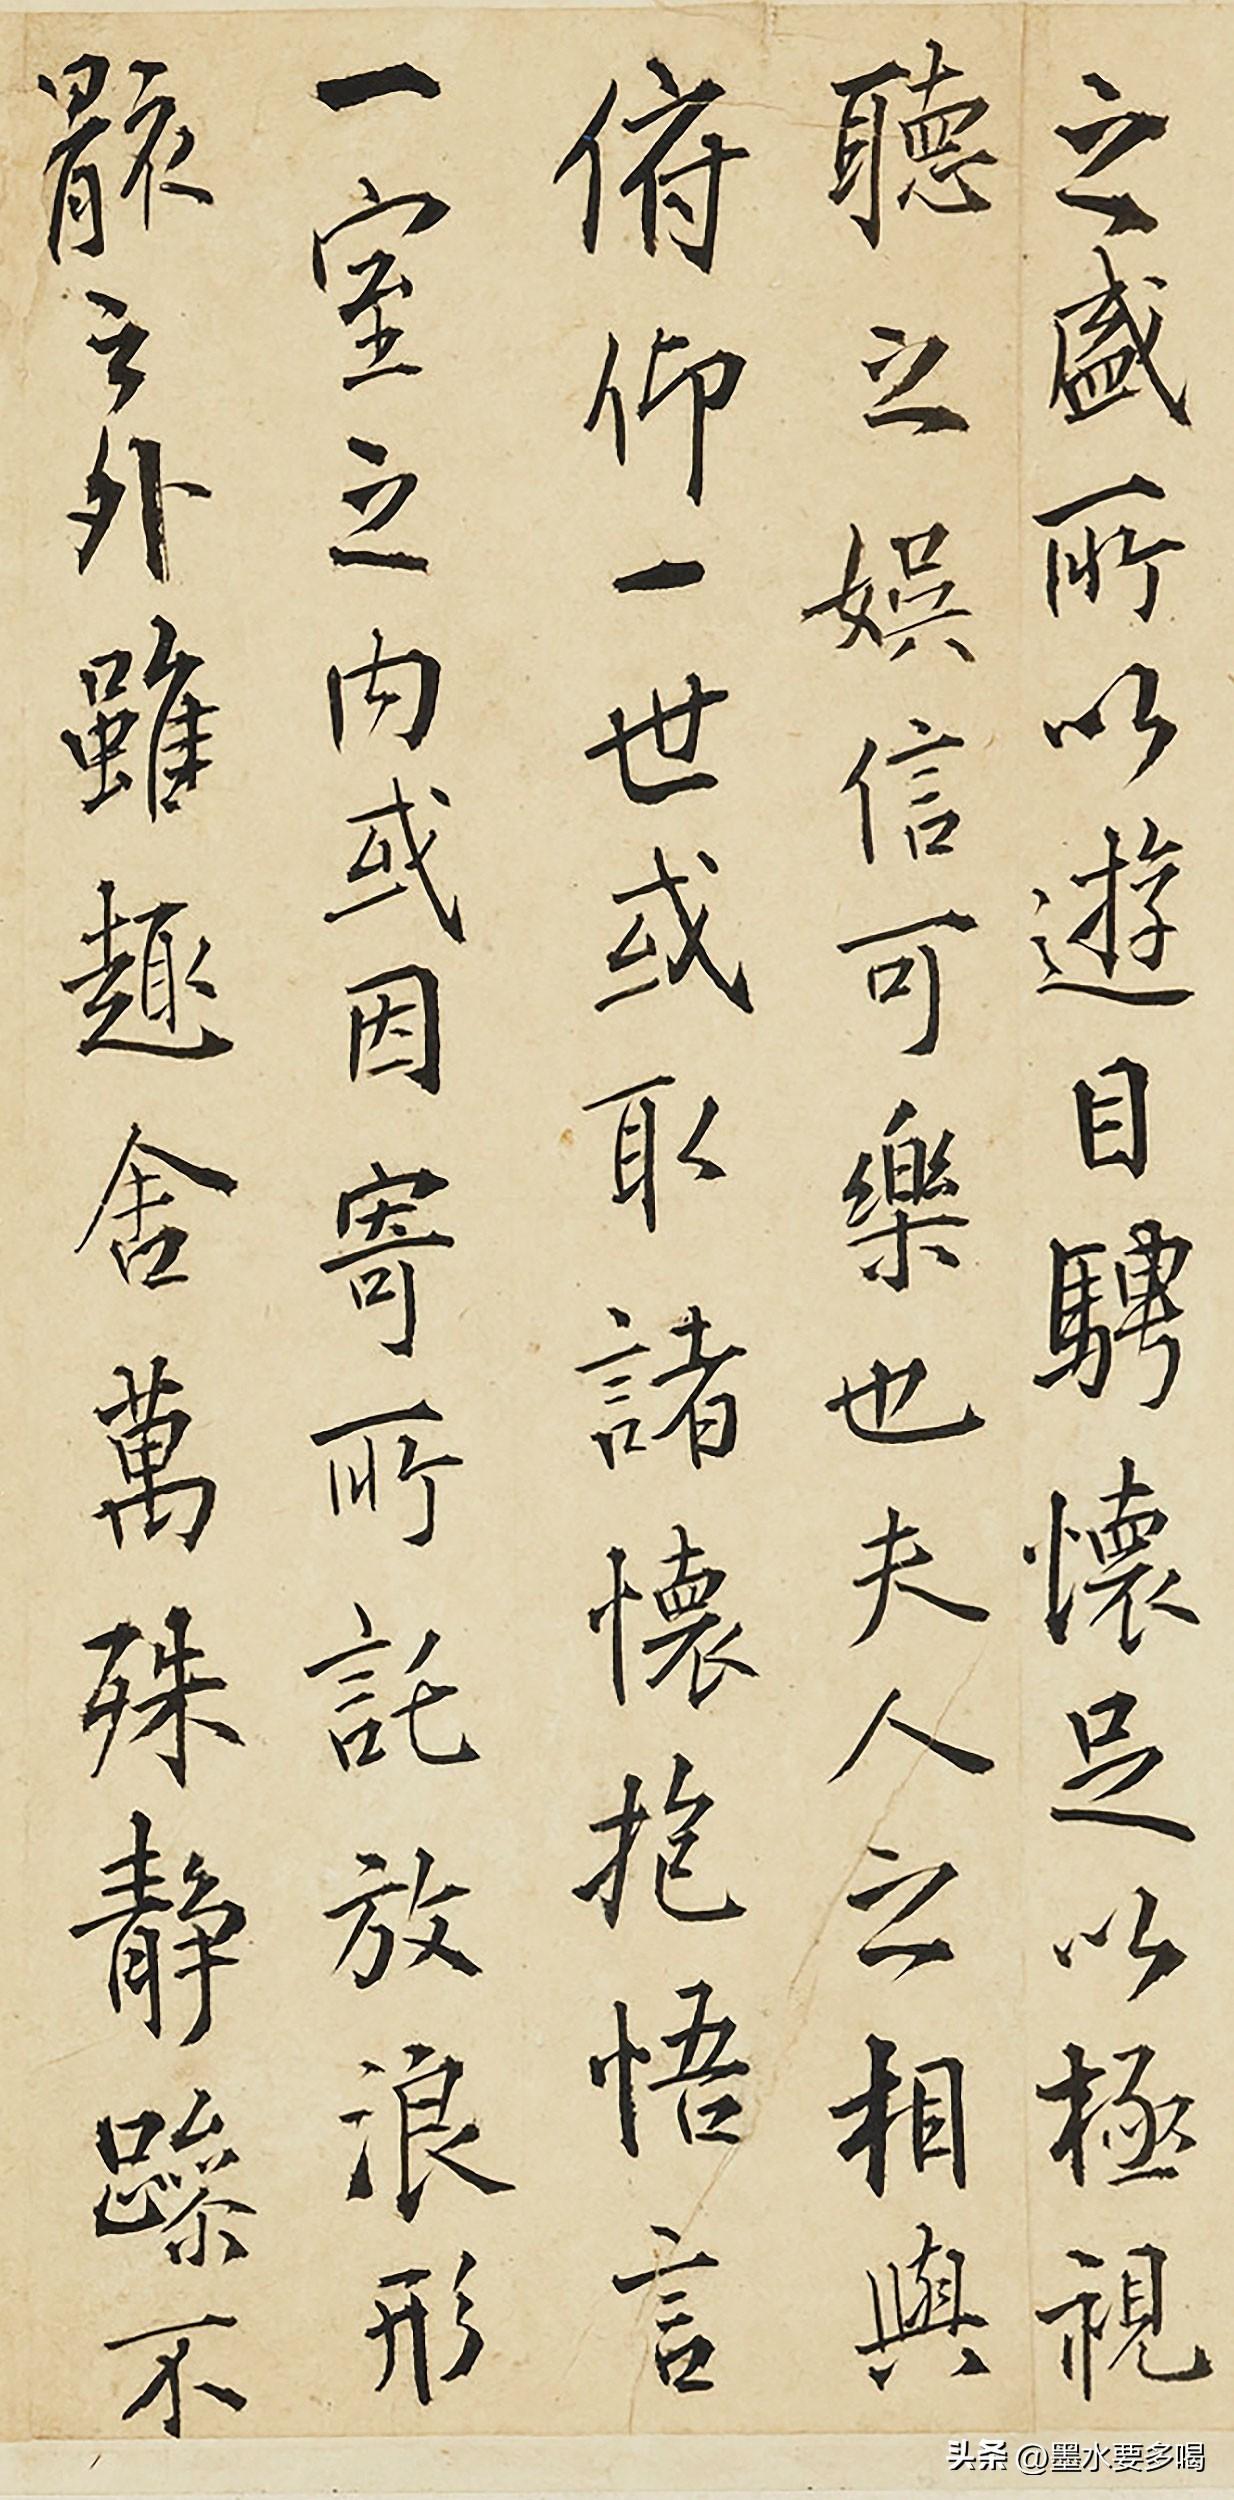 之盛所以遊目騁懷足以極視
聽之娛信可樂也夫人之相與
俯仰一世或取諸懷抱悟言
一室之内或因寄所託放浪形
骸之外雖趣舍萬殊靜躁不
头条 @墨水要多喝